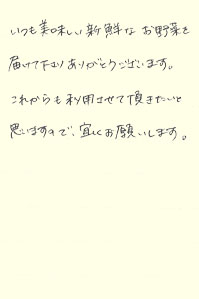 いつも美味しい新鮮なお野菜を
届けて下さりありがとうございます。
これからも利用させて頂きたいと
思いますので、宜しくお願いします。